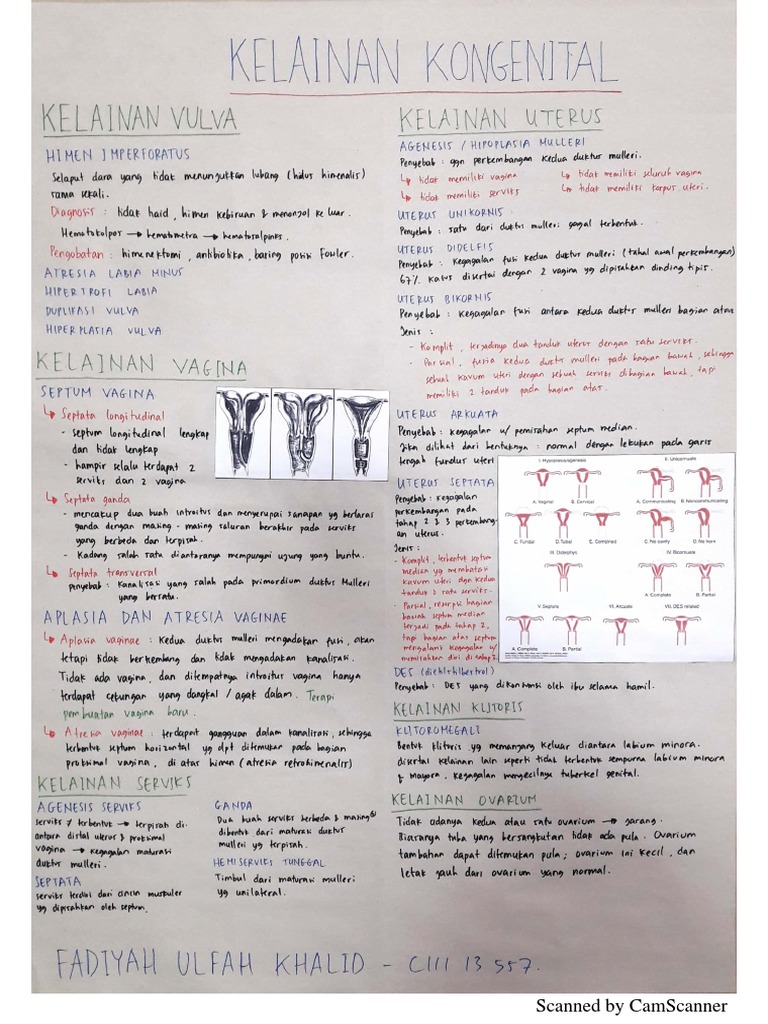 KELAINAN KONGENITAL
KELAINAN VULVA
HIMEN IMPERFORATUS
Selaput dara yang tidak menunjukkan lubang (hiatus himenalis)
sama sekali.
Diagnosis : tidak haid, himen kebiruan & menonjol ke luar.
Hematokolpos → hematometra → hematosalpinks.
Pengobatan : himenektomi, antibiotika, baring posisi Fowler.
ATRESIA LABIA MINUS
HIPERTROFI LABIA
DUPLIFASI VULVA
HIPERPLASIA VULVA
KELAINAN VAGINA
SEPTUM VAGINA
↳ Septata longitudinal
- septum longitudinal lengkap
dan tidak lengkap
- hampir selalu terdapat 2
serviks dan 2 vagina
↳ Septata ganda
- mencakup dua buah introitus dan menyerupai senapan yg berlaras
ganda dengan masing-masing saluran berakhir pada serviks
yang berbeda dan terpisah.
- Kadang salah satu diantaranya mempunyai ujung yang buntu.
↳ Septata transversal
penyebab : kanalisasi yang salah pada primordium duktus Mulleri
yang bersatu.
APLASIA DAN ATRESIA VAGINAE
↳ Aplasia vaginae : kedua duktus mulleri mengadakan fusi, akan
tetapi tidak berkembang dan tidak mengadakan kanalisasi.
Tidak ada vagina, dan ditempatnya introitus vagina hanya
terdapat cekungan yang dangkal / agak dalam. Terapi
pembuatan vagina baru.
↳ Atresia vaginae : terdapat gangguan dalam kanalisasi, sehingga
terbentuk septum horizontal yg dpt ditemukan pada bagian
proksimal vagina, di atas himen (atresia retrohimenalis)
KELAINAN SERVIKS
AGENESIS SERVIKS
serviks terbentuk → terpisah di-
antara distal uterus & proksimal
vagina → kegagalan maturasi
duktus mulleri.
SEPTATA
serviks terdiri dari cincin muskuler
yg dipisahkan oleh septum.
GANDA
Dua buah serviks berbeda & masing2
dibentuk dari maturasi duktus
mulleri yg terpisah.
HEMISERVIKS TUNGGAL
Timbul dari maturasi mulleri
yg unilateral.
KELAINAN UTERUS
AGENESIS / HIPOPLASIA MULLERI
Penyebab : ggn perkembangan kedua duktus mulleri.
↳ tidak memiliki vagina ↳ tidak memiliki seluruh vagina
↳ tidak memiliki serviks ↳ tidak memiliki korpus uteri.
UTERUS UNIKORNIS
Penyebab : satu dari duktus mulleri gagal terbentuk.
UTERUS DIDELFIS
Penyebab : kegagalan fusi kedua duktus mulleri (tahap awal perkembangan)
67% kasus disertai dengan 2 vagina yg dipisahkan dinding tipis.
UTERUS BIKORNIS
Penyebab : kegagalan fusi antara kedua duktus mulleri bagian atas
Jenis :
- Komplit, terjadinya dua tanduk uterus dengan satu serviks.
- Parsial, fusia kedua duktus mulleri pada bagian bawah, sehingga
sebuah kavum uteri dengan sebuah serviks dibagian bawah, tapi
memiliki 2 tanduk pada bagian atas.
UTERUS ARKUATA
Penyebab : kegagalan u/ pemisahan septum median.
Jika dilihat dari bentuknya : normal dengan lekukan pada garis
tengah fundus uteri
UTERUS SEPTATA
Penyebab : kegagalan
perkembangan pada
tahap 2 & 3 perkembang-
an uterus.
Jenis :
- Komplit, terbentuk septum
median yg membatasi
kavum uteri dgn kedua
tanduk & satu serviks.
- Parsial, resorpsi bagian
bawah septum median
terjadi pada tahap 2,
tapi bagian atas septum
mengalami kegagalan u/
memisahkan diri di tahap 2.
I. Hypoplasia/agenesis
II. Unicornuate
A. Vaginal
B. Cervical
A. Communicating
B. Noncommunicating
C. Fundal
D. Tubal
E. Combined
C. No cavity
D. No horn
III. Didelphys
IV. Bicornuate
A. Complete
B. Partial
V. Septate
VI. Arcuate
VII. DES related
A. Complete
B. Partial
DES (diethylstilbestrol)
Penyebab : DES yang dikonsumsi oleh ibu selama hamil.
KELAINAN KLITORIS
KLITOROMEGALI
Bentuk klitoris yg memanjang keluar diantara labium minora.
disertai kelainan lain seperti tidak terbentuk sempurna labium minora
& mayora, kegagalan mengecilnya tuberkel genital.
KELAINAN OVARIUM
Tidak adanya kedua atau satu ovarium → jarang.
Biasanya tuba yang bersangkutan tidak ada pula. Ovarium
tambahan dapat ditemukan pula ; ovarium ini kecil, dan
letak jauh dari ovarium yang normal.
FADIYAH ULFAH KHALID - C111 13 557.
Scanned by CamScanner